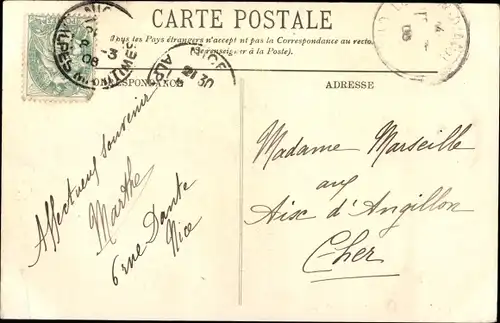 CARTE POSTALE
Tous les Pays étrangers n'acceptent pas la Correspondance au recto
(se renseigner à la Poste).
CORRESPONDANCE
ADRESSE
NICE
21 30
Affectueux souvenir
Marthe
6 rue Dante
Nice
Madame Marseille
aux
Aix d'Angillon
Cher